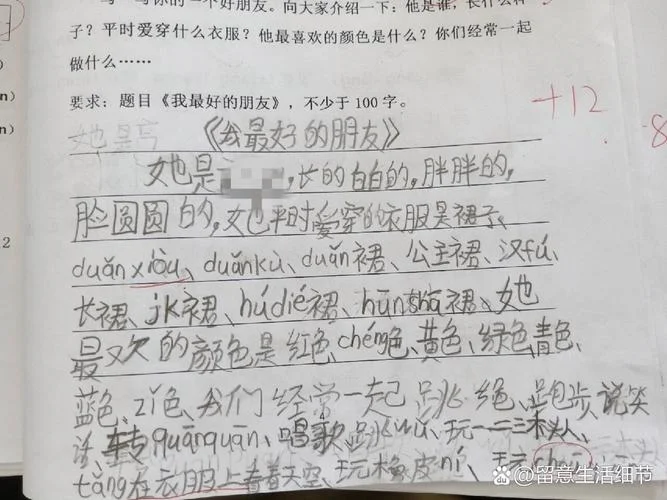 写一写你的一个好朋友。向大家介绍一下：他是谁，长什么样
子？平时爱穿什么衣服？他最喜欢的颜色是什么？你们经常一起
做什么……
要求：题目《我最好的朋友》，不少于 100 字。
+12
她是
《我最好的朋友》
她是，长的白白的，胖胖的，
脸圆圆的，她平时爱穿的衣服是裙子、
duǎn xiòu、duǎnkù、duǎn裙、公主裙、汉fú、
长裙、jk裙、húdié裙、hūn裙、她
最欢的颜色是红色、chéng色、黄色、绿色、青色、
蓝色、zǐ色、我们经常一起跳绳、跑步、说笑
话、转quānquān、唱歌、跳wǔ、玩一二三木头人、
tǎng在衣服上看着天空、玩橡皮ní、
@留意生活细节